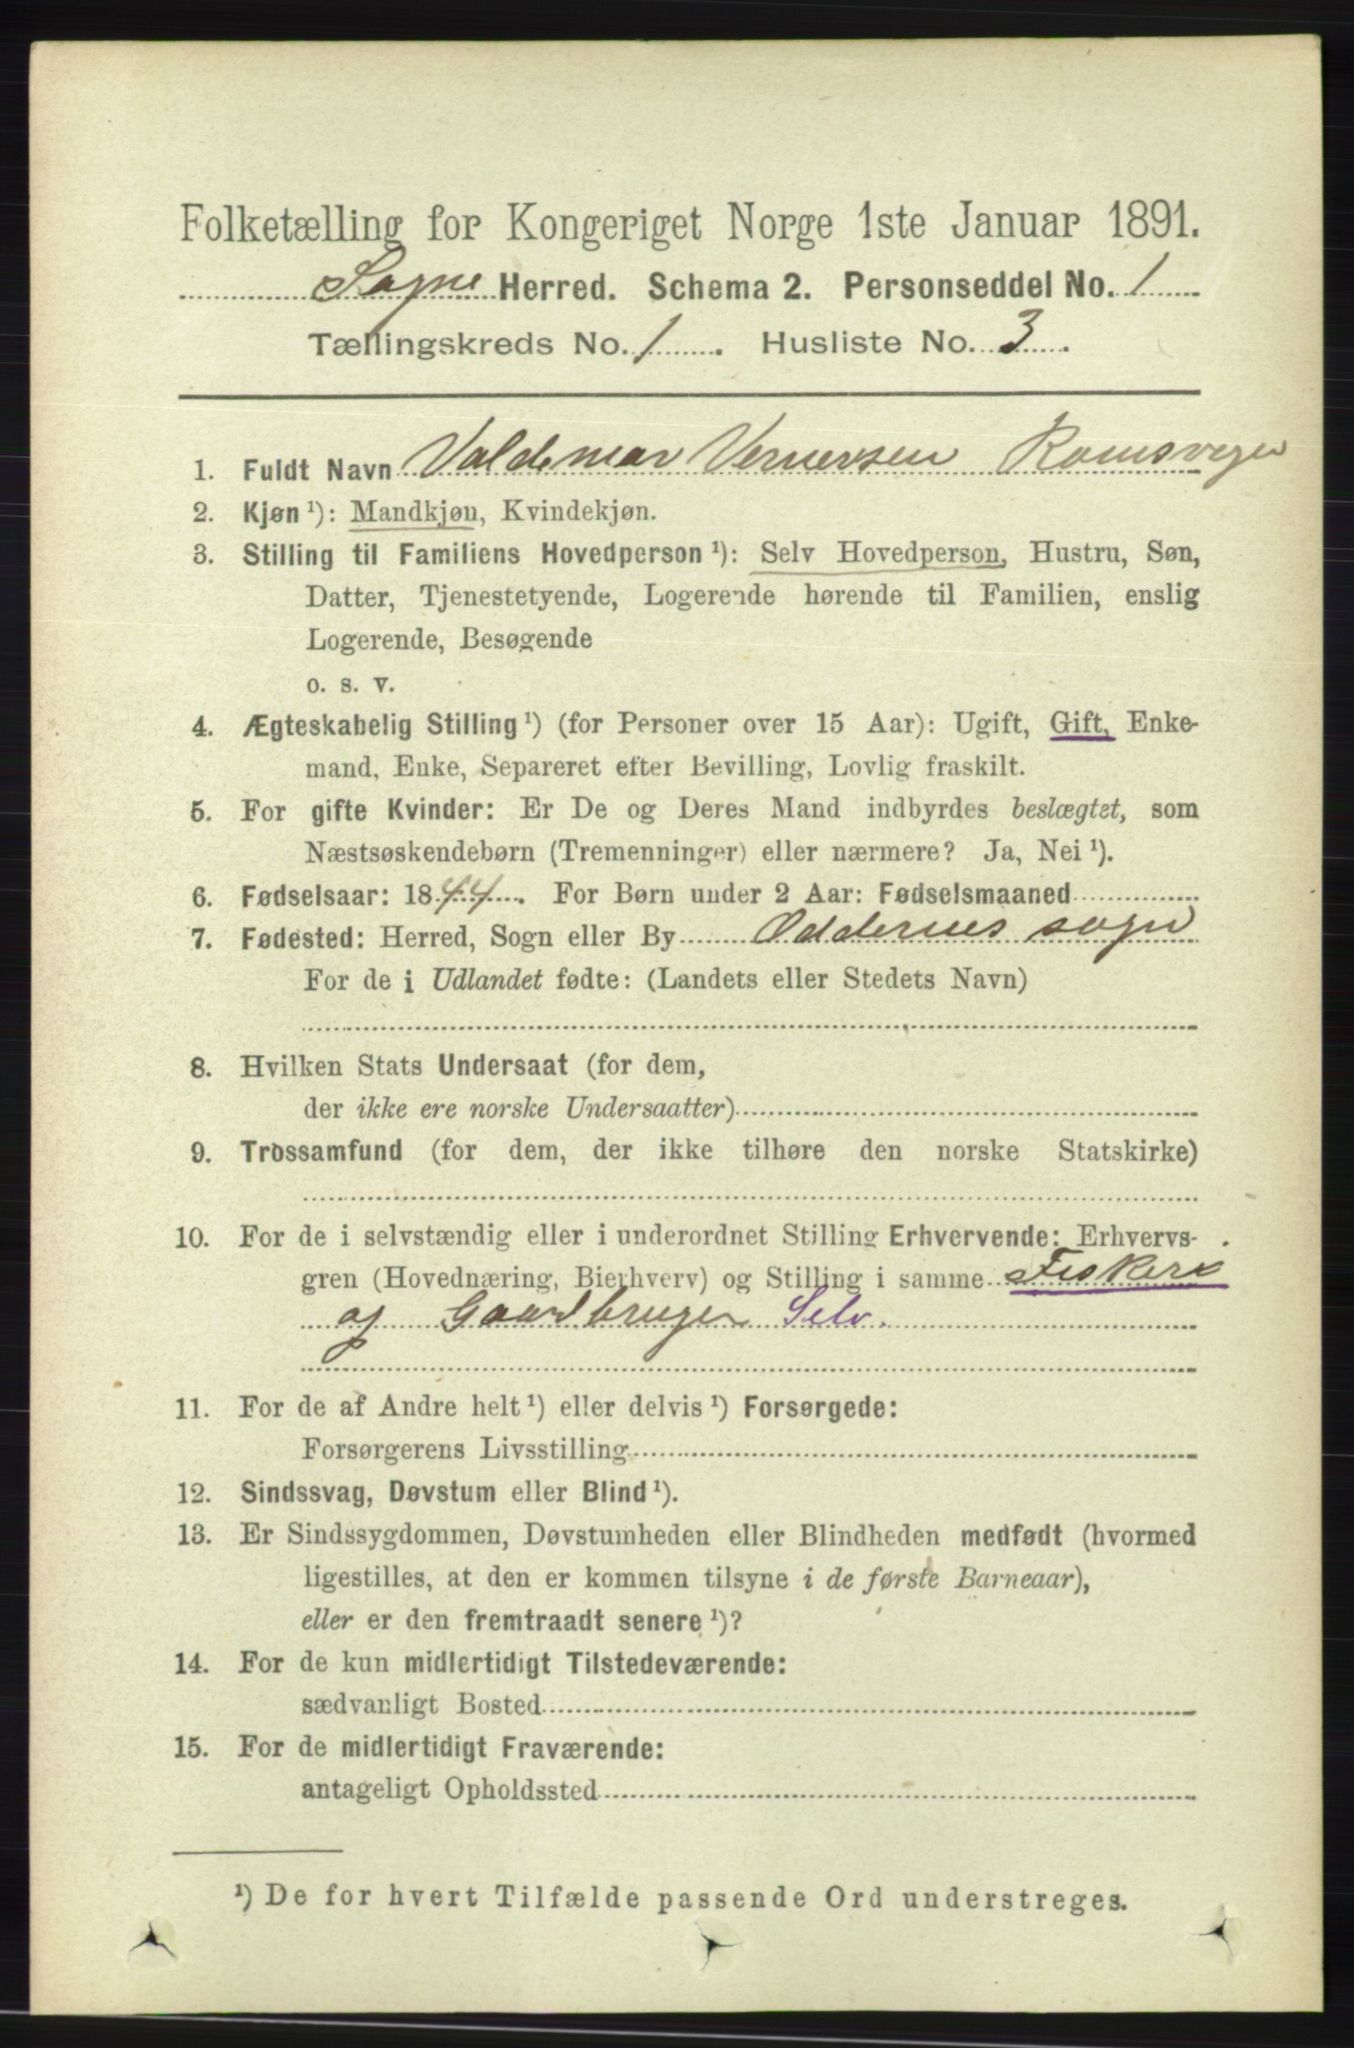 Folketælling for Kongeriget Norge 1ste Januar 1891.
Søgne Herred. Schema 2. Personseddel No. 1
Tællingskreds No. 1. Husliste No. 3.
1. Fuldt Navn Valdemar Vernersen Romsvigen
2. Kjøn ¹): Mandkjøn, Kvindekjøn.
3. Stilling til Familiens Hovedperson ¹): Selv Hovedperson, Hustru, Søn,
Datter, Tjenestetyende, Logerende hørende til Familien, enslig
Logerende, Besøgende
o. s. v.
4. Ægteskabelig Stilling ¹) (for Personer over 15 Aar): Ugift, Gift, Enke-
mand, Enke, Separeret efter Bevilling, Lovlig fraskilt.
5. For gifte Kvinder: Er De og Deres Mand indbyrdes beslægtet, som
Næstsøskendebørn (Tremenninger) eller nærmere? Ja, Nei ¹).
6. Fødselsaar: 1844. For Børn under 2 Aar: Fødselsmaaned
7. Fødested: Herred, Sogn eller By Oddernes sogn
For de i Udlandet fødte: (Landets eller Stedets Navn)
8. Hvilken Stats Undersaat (for dem,
der ikke ere norske Undersaatter)
9. Trossamfund (for dem, der ikke tilhøre den norske Statskirke)
10. For de i selvstændig eller i underordnet Stilling Erhvervende: Erhvervs-
gren (Hovednæring, Bierhverv) og Stilling i samme Fisker
og Gaardbruger Selv.
11. For de af Andre helt ¹) eller delvis ¹) Forsørgede:
Forsørgerens Livsstilling
12. Sindssvag, Døvstum eller Blind ¹).
13. Er Sindssygdommen, Døvstumheden eller Blindheden medfødt (hvormed
ligestilles, at den er kommen tilsyne i de første Barneaar),
eller er den fremtraadt senere ¹)?
14. For de kun midlertidigt Tilstedeværende:
sædvanligt Bosted
15. For de midlertidigt Fraværende:
antageligt Opholdssted
¹) De for hvert Tilfælde passende Ord understreges.